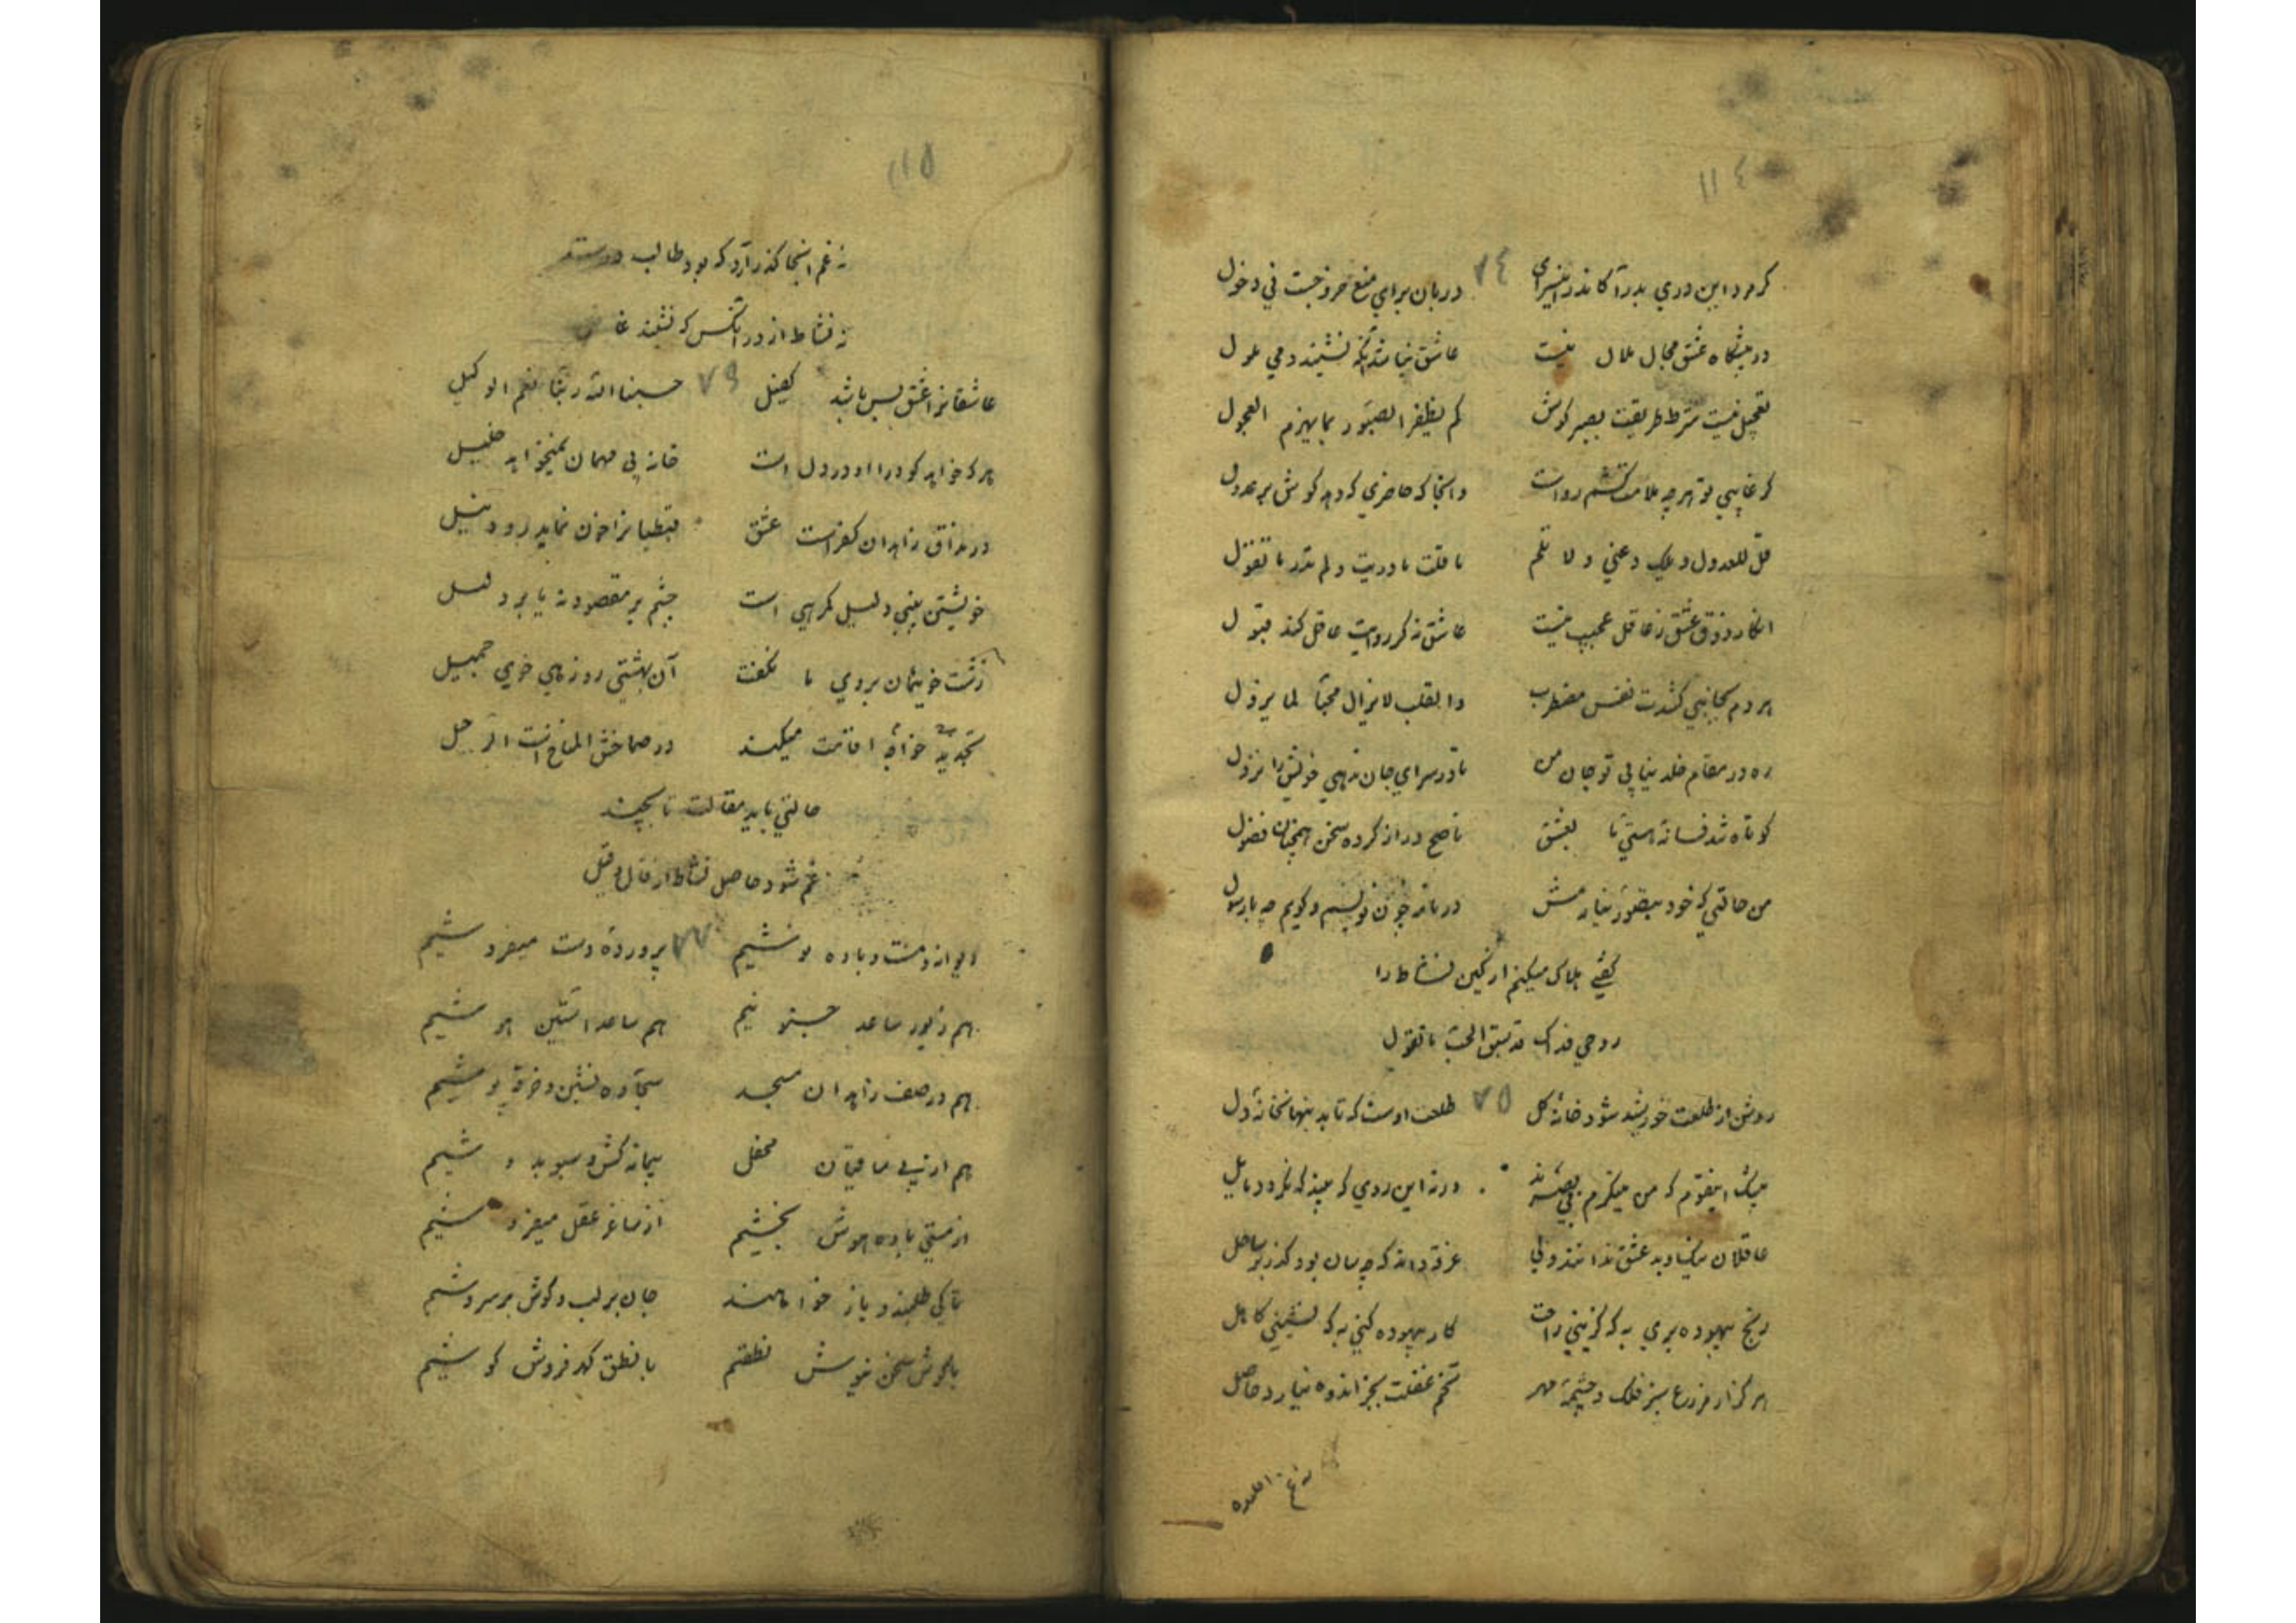 ۱۱٤
کر مرد این دری بدر آ کاندر این سرای ۷٤ دربان برای منع خروجست نی دخول
در پیشگاه عشق مجال ملال نیست عاشق نباشد آنکه نشیند دمی ملول
تعجیل نیست شرط طریقت بصبر کوش کم یظفر الصبور بما یهزم العجول
کر غایبی تو هرچه ملامت کشم رواست وانجا که حاضری که دهد کوش بر عدول
قل للعدول ویلک دعنی ولا تلم ما قلت ما دریت ولم تدر ما تقول
انکار ذوق عشق ز عاقل عجیب نیست عاشق نه کر روایت عاقل کند قبول
هر دم بجانبی کشدت نفس مضطرب والقلب لا یزال محبا لما یزول
ره در مقام خلد نیابی تو جان من تا در سرای جان ندهی خویش را نزول
کوتاه شد فسانه هستی ما بعشق ناصح دراز کرده سخن همچنان فضول
من حالتی که خود بتصور نیارمش در نامه چون نویسم و کویم چه با رسول
کفتی هلاک میکنم ار کین نشاط را
روحی فداک قد سبق الحب ما تقول
روشن از طلعت خورشید شود خانه کل ۷۵ طلعت اوست که تابد بنهانخانه دل
بیشک اینقوم که من مینکرم بی بصرند ورنه این روی که بیند که نکردد مایل
عاقلان نیک و بد عشق ندانند ولی غرقه داند که چه سان بود کذر بر ساحل
رنج بیهوده بری به که کزینی راحت کار بیهوده کنی به که نشینی کاهل
هرکز از مزرع سبز فلک و چشمه مهر تخم غفلت بجز اندوه نیارد حاصل
نه غم
۱۱۵
نه غم اینجا کذر آرد که بود طالب
نه نشاط از در آنکس که نشیند غا
عاشقانرا عشق بس باشد کفیل ۷۶ حسبنا الله ربنا نعم الوکیل
هر که خواهد کو درآ او در دل است خانه بی مهمان نمیخواهد خلیل
در مذاق زاهدان کفر است عشق قبطیانرا خون نماید رود نیل
خویشتن بینی دلیل کمرهی است چشم بر مقصود نه یا بر دلیل
زشت خویشان بروی ما نکفت آن بهشتی روز های خوی جمیل
خواجه اقامت میکند در صماخش المناخ است الرحیل
حالتی باید مقالت تا بچند
غم شود حاصل نشاط از قال و قیل
دیوانه و مست و باده نوشیم ۷۷ پرورده دست میفروشیم
هم زیور ساعد حسنو نیم هم ساعد آستین هو شیم
هم در صف زاهدان مسجد سجاده نشین و خرقه پوشیم
هم از پی ساقیان محفل پیمانه کش و سبو بدوشیم
از مستی باده هوش بخشیم از ساغر عقل میفروشیم
تا کی طلبند و باز خوانند جان بر لب و کوش بر سروشیم
خاموش سخن نیوش نطقیم با نطق کهر فروش کوشیم